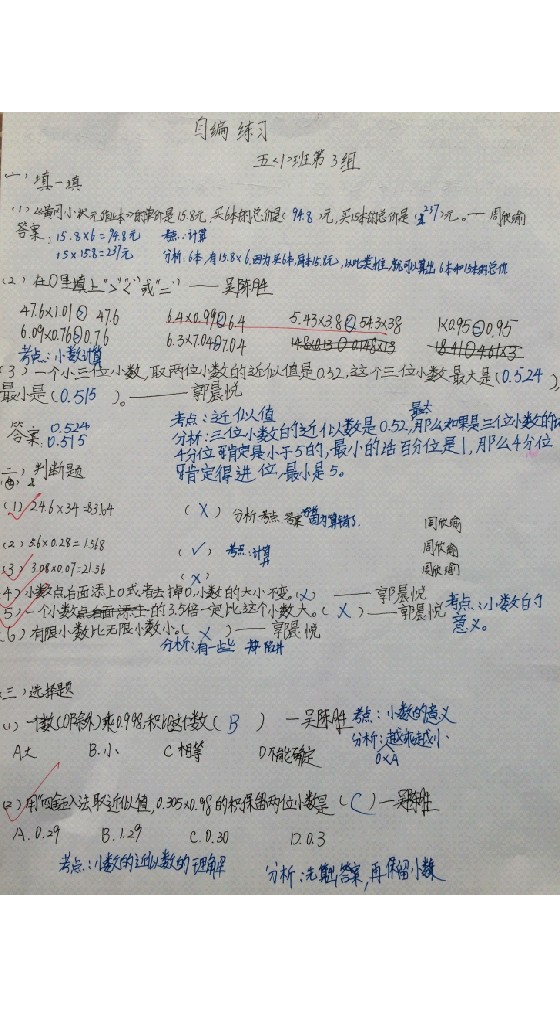 自编练习
五<1>班第3组
一、填一填
(1)《黄冈小状元作业本》的单价是15.8元,买6本的总价是(94.8)元,买15本的总价是(237)元。—周欣瑜
答案:15.8×6=94.8元 考点:计算
15×15.8=237元 分析:6本,有15.8×6,因为买6本,每本15.8元,以此类推,就可以算出6本和15本的总价
(2)在○里填上“>”“<”或“=” ——吴陈胜
47.6×1.01○47.6 6.4×0.99○6.4 5.43×3.8○54.3×38 1×0.95○0.95
6.09×0.76○0.76 6.3×7.04○7.04
考点:小数计算
(3)一个小三位小数,取两位小数的近似值是0.52,这个三位小数最大是(0.524)
最小是(0.515)。——郭晨悦
考点:近似值
答案:0.524
0.515
分析:三位小数的近似数是0.52,那么如果是三位小数的最大
4分位肯定是小于5的,最小的话百分位是1,那么4分位
肯定得进位,最小是5。
二、判断题
(1)24.6×34=83.64 (×) 分析 考点 答案 周欣瑜
(2)5.6×0.28=1.568 (✓) 考点:计算 周欣瑜
(3)3.08×0.07=21.56 (×) 周欣瑜
(4)小数点后面添上0或者去掉0,小数的大小不变。(×) ——郭晨悦
(5)一个小数的3.5倍一定比这个小数大。(×)——郭晨悦 考点:小数的
意义。
(6)有限小数比无限小数小。(×)——郭晨悦
分析:有一些
三、选择题
(1)一个数(0除外)乘0.998,积比这个数(B) —吴陈胜 考点:小数的意义
分析:越乘越小
A.大 B.小 C相等 D不能确定 0×A
(2)用“四舍五入”法取近似值,0.305×0.98的积保留两位小数是(C)—吴陈胜
A.0.29 B.1.29 C.0.30 D.0.3
考点:小数的近似数的理解
分析:先算出答案,再保留小数